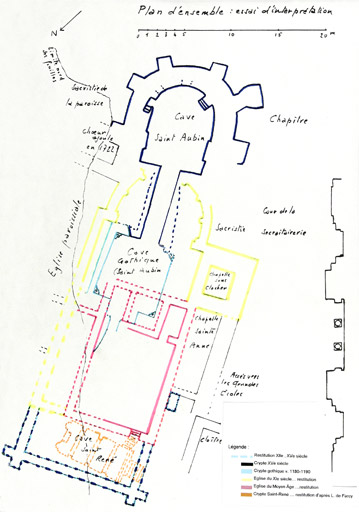 Plan d'ensemble : essai d'interprétation
N
0 1 2 3 4 5 10 15 20 m
Limite nord
des fouilles
Sacristie de
la paroisse
Chœur
ajouté
en 1722
Cave
Saint Aubin
Chapitre
Eglise paroissiale
Sacristie
Cour de la
Secrétairerie
Cave
Gothique
(Saint Aubin
Chapelle
sous
Clocher
Chapelle
Sainte
Anne
Accès vers
les Grandes
Ecoles
Cloître
Cave
Saint
René
Légende :
Restitution XIIe . XVIe siècle
Crypte XVIe siècle
Crypte gothique v. 1180-1190
Eglise du XIe siècle ... restitution
Eglise du Moyen-Age ... restitution
Crypte Saint-Rene ... restitution d'après L. de Farcy